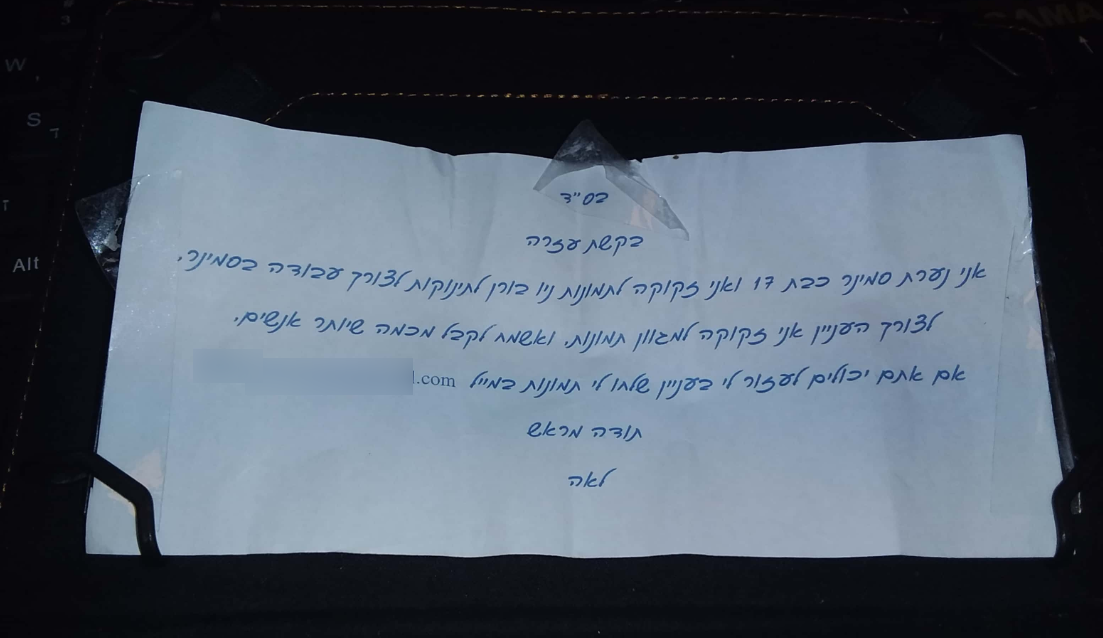 בס"ד
בקשת עזרה
אני נערת סמינר כבת 17 ואני זקוקה לתמונות ניו בורן לתינוקות לצורך עבודה בסמינר.
לצורך העניין אני זקוקה למגוון תמונות, ואשמח לקבל מכמה שיותר אנשים.
אם אתם יכולים לעזור לי בעניין שלחו לי תמונות במייל l.com
תודה מראש
לאה
W
S ד
Alt